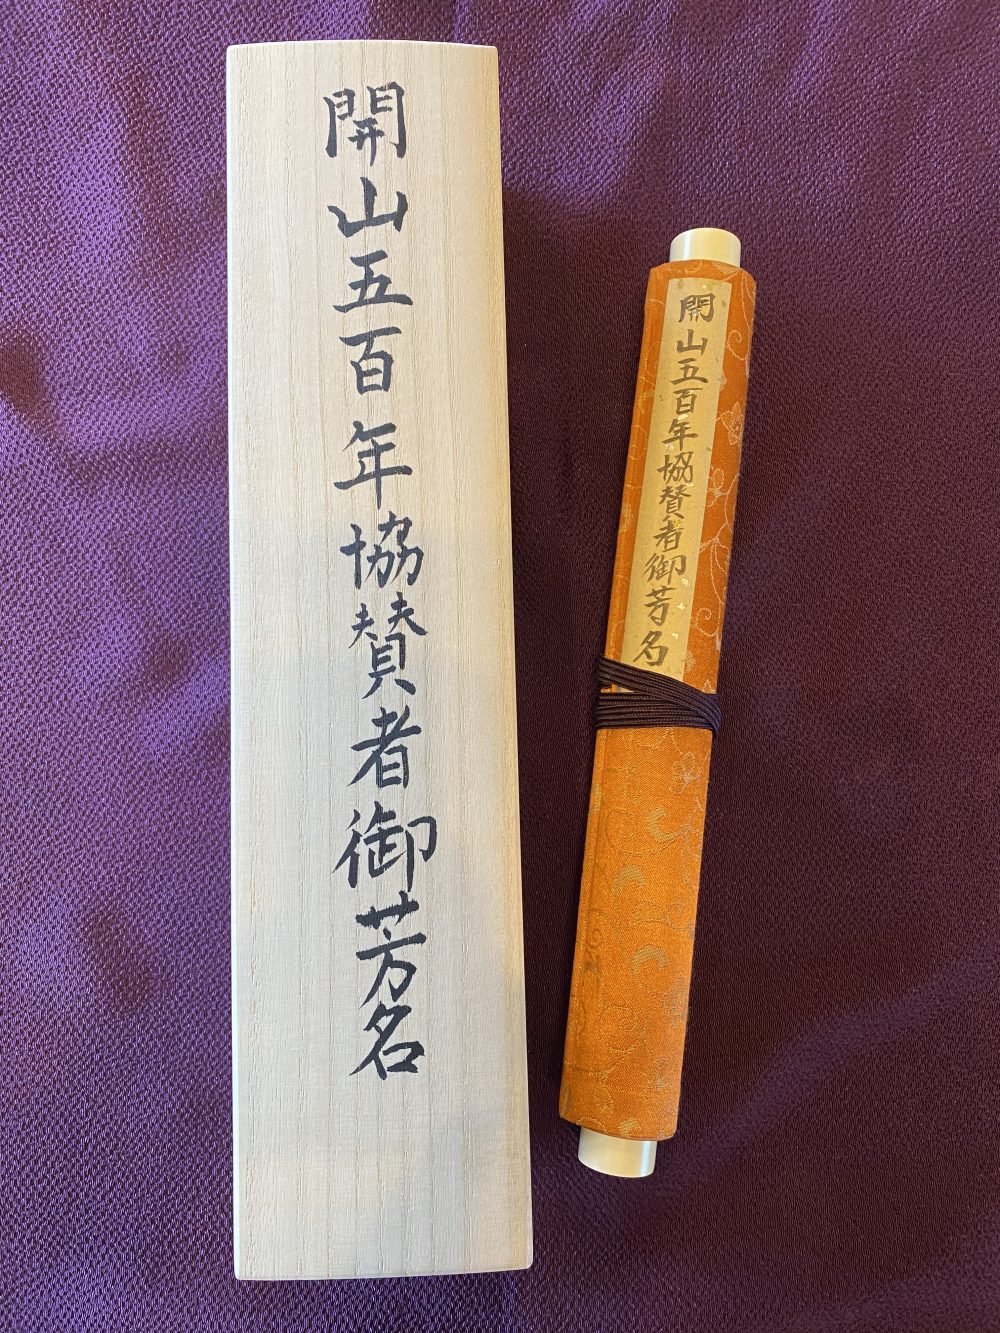 開山五百年協賛者御芳名
開山五百年協賛者御芳名